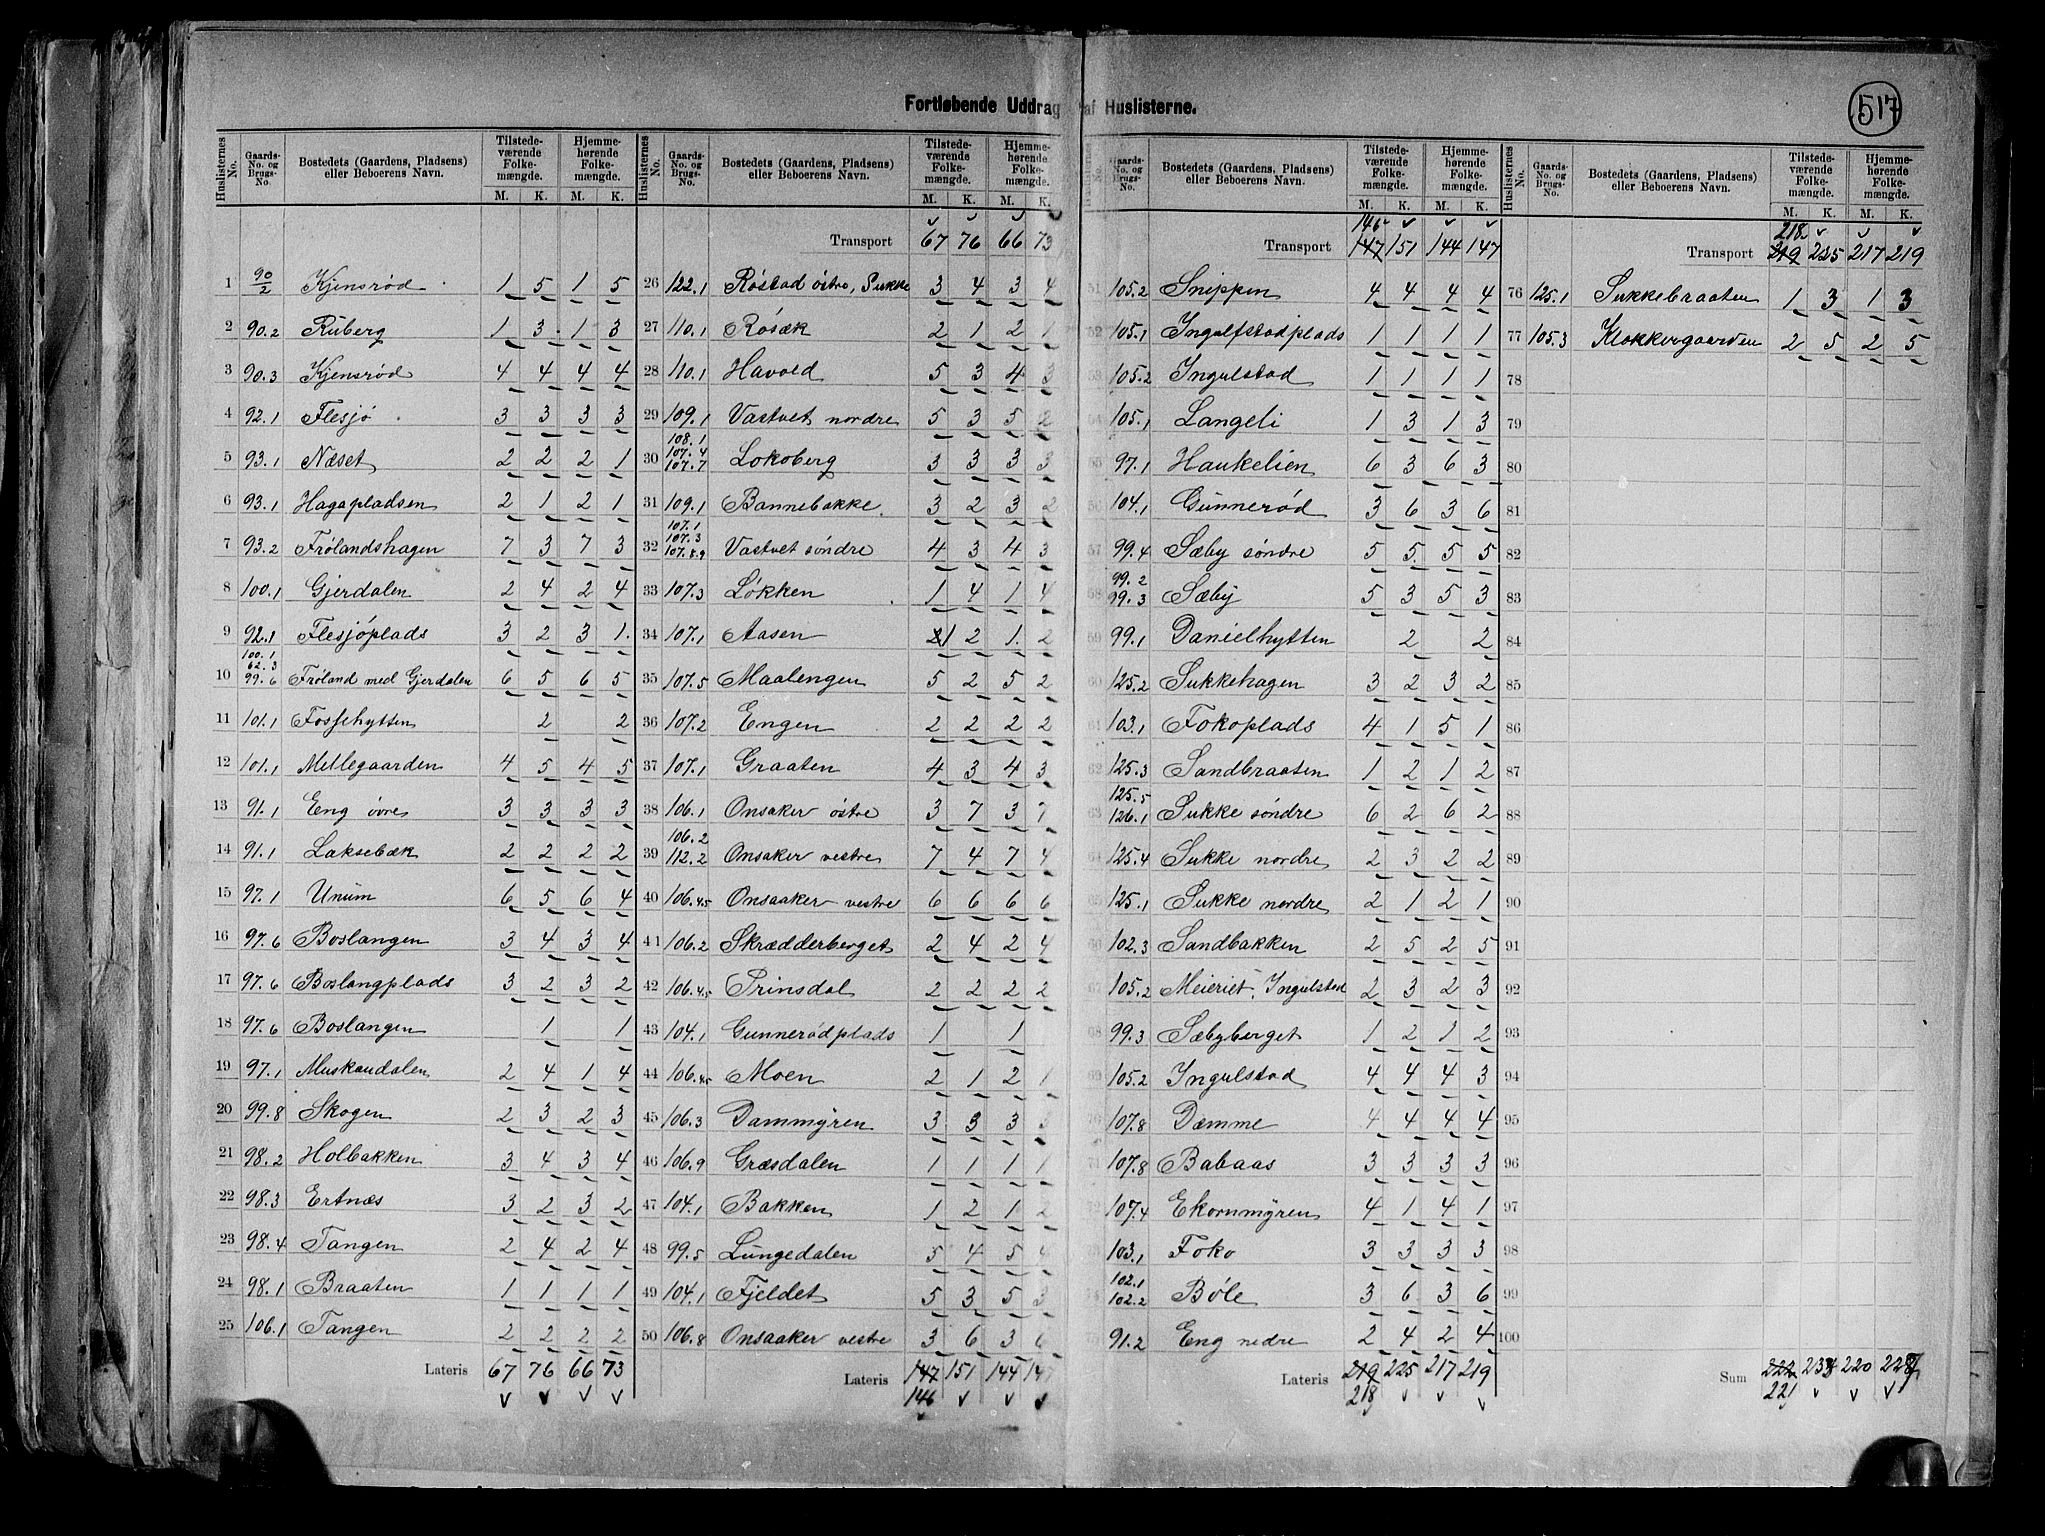 517
Fortløbende Uddrag af Huslisterne.
Huslisternes No. Gaards-No. og Brugs-No. Bostedets (Gaardens, Pladsens) eller Beboerens Navn. Tilstedeværende Folkemængde. M. K. Hjemmehørende Folkemængde. M. K.
1 90/2 Kjensrød 1 5 1 5
2 90.2 Ruberg 1 3 1 3
3 90.3 Kjensrød 4 4 4 4
4 92.1 Flesjø 3 3 3 3
5 93.1 Næset 2 2 2 1
6 93.1 Hagapladsen 2 1 2 1
7 93.2 Frølandshagen 7 3 7 3
8 100.1 Gjerdalen 2 4 2 4
9 92.1 Flesjøplads 3 2 3 1
10 100.1 62.3 99.6 Frøland med Gjerdalen 6 5 6 5
11 101.1 Fossehytten 2 2
12 101.1 Mellegaarden 4 5 4 5
13 91.1 Eng øvre 3 3 3 3
14 91.1 Laksebæk 2 2 2 2
15 97.1 Unum 6 5 6 4
16 97.6 Boslangen 3 4 3 4
17 97.6 Boslangplads 3 2 3 2
18 97.6 Boslangen 1 1
19 97.1 Muskaudalen 2 4 1 4
20 99.8 Skogen 2 3 2 3
21 98.2 Holbakken 3 4 3 4
22 98.3 Ertnæs 3 2 3 2
23 98.4 Tangen 2 4 2 4
24 98.1 Braaten 1 1 1 1
25 106.1 Tangen 2 2 2 2
Lateris 67 76 66 73
Huslisternes No. Gaards-No. og Brugs-No. Bostedets (Gaardens, Pladsens) eller Beboerens Navn. Tilstedeværende Folkemængde. M. K. Hjemmehørende Folkemængde. M. K.
Transport 67 76 66 73
26 122.1 Røstad østre, Sukke 3 4 3 4
27 110.1 Røsæk 2 1 2 1
28 110.1 Havold 5 3 4 3
29 109.1 Vastvet nordre 5 3 5 2
30 108.1 107.4 107.7 Lokoberg 3 3 3 3
31 109.1 Bannebakke 3 2 3 2
32 107.1 107.3 107.8.9 Vastvet søndre 4 3 4 3
33 107.3 Løkken 1 4 1 4
34 107.1 Aasen 2 1 2 1 2
35 107.5 Maalengen 5 2 5 2
36 107.2 Engen 2 2 2 2
37 107.1 Graaten 4 3 4 3
38 106.1 Onsaker østre 3 7 3 7
39 106.2 112.2 Onsaker vestre 7 4 7 4
40 106.45 Onsaaker vestre 6 6 6 6
41 106.2 Skrædderberget 2 4 2 4
42 106.45 Prinsdal 2 2 2 2
43 104.1 Gunnerødplads 1 1
44 106.45 Moen 2 1 2 1
45 106.3 Dammyren 3 3 3 3
46 106.9 Græsdalen 1 1 1 1
47 104.1 Bakken 1 2 1 2
48 99.5 Lungedalen 5 4 5 4
49 104.1 Fjeldet 5 3 5 3
50 106.8 Onsaaker vestre 3 6 3 6
Lateris 147 151 144 147
146
Gaards-No. og Brugs-No. Bostedets (Gaardens, Pladsens) eller Beboerens Navn. Tilstedeværende Folkemængde. M. K. Hjemmehørende Folkemængde. M. K.
146
Transport 147 151 144 147
51 105.2 Snippen 4 4 4 4
52 105.1 Ingulfstadplads 1 1 1 1
53 105.2 Ingulstad 1 1 1 1
54 105.1 Langeli 1 3 1 3
55 97.1 Haukelien 6 3 6 3
56 104.1 Gunnerød 3 6 3 6
57 99.4 Sæby søndre 5 5 5 5
58 99.2 99.3 Sæby 5 3 5 3
59 99.1 Danielhytten 2 2
60 125.2 Sukkehagen 3 2 3 2
61 103.1 Fokoplads 4 1 5 1
62 125.3 Sandbraaten 1 2 1 2
63 125.5 126.1 Sukke søndre 6 2 6 2
64 125.4 Sukke nordre 2 3 2 2
65 125.1 Sukke nordre 2 1 2 1
66 102.3 Sandbakken 2 5 2 5
67 105.2 Meieriet, Ingulstad 2 3 2 3
68 99.3 Sæbyberget 1 2 1 2
69 105.2 Ingulstad 4 4 4 3
70 107.8 Dæmme 4 4 4 4
71 107.8 Babaas 3 3 3 3
72 107.4 Ekornmyren 4 1 4 1
73 103.1 Foko 3 3 3 3
74 102.1 102.2 Bøle 3 6 3 6
75 91.2 Eng nedre 2 4 2 4
Lateris 219 225 217 219
218
Huslisternes No. Gaards-No. og Brugs-No. Bostedets (Gaardens, Pladsens) eller Beboerens Navn. Tilstedeværende Folkemængde. M. K. Hjemmehørende Folkemængde. M. K.
218
Transport 219 225 217 219
76 125.1 Sukkebraaten 1 3 1 3
77 105.3 Klokkergaarden 2 5 2 5
78
79
80
81
82
83
84
85
86
87
88
89
90
91
92
93
94
95
96
97
98
99
100
Sum 222 233 220 227
221